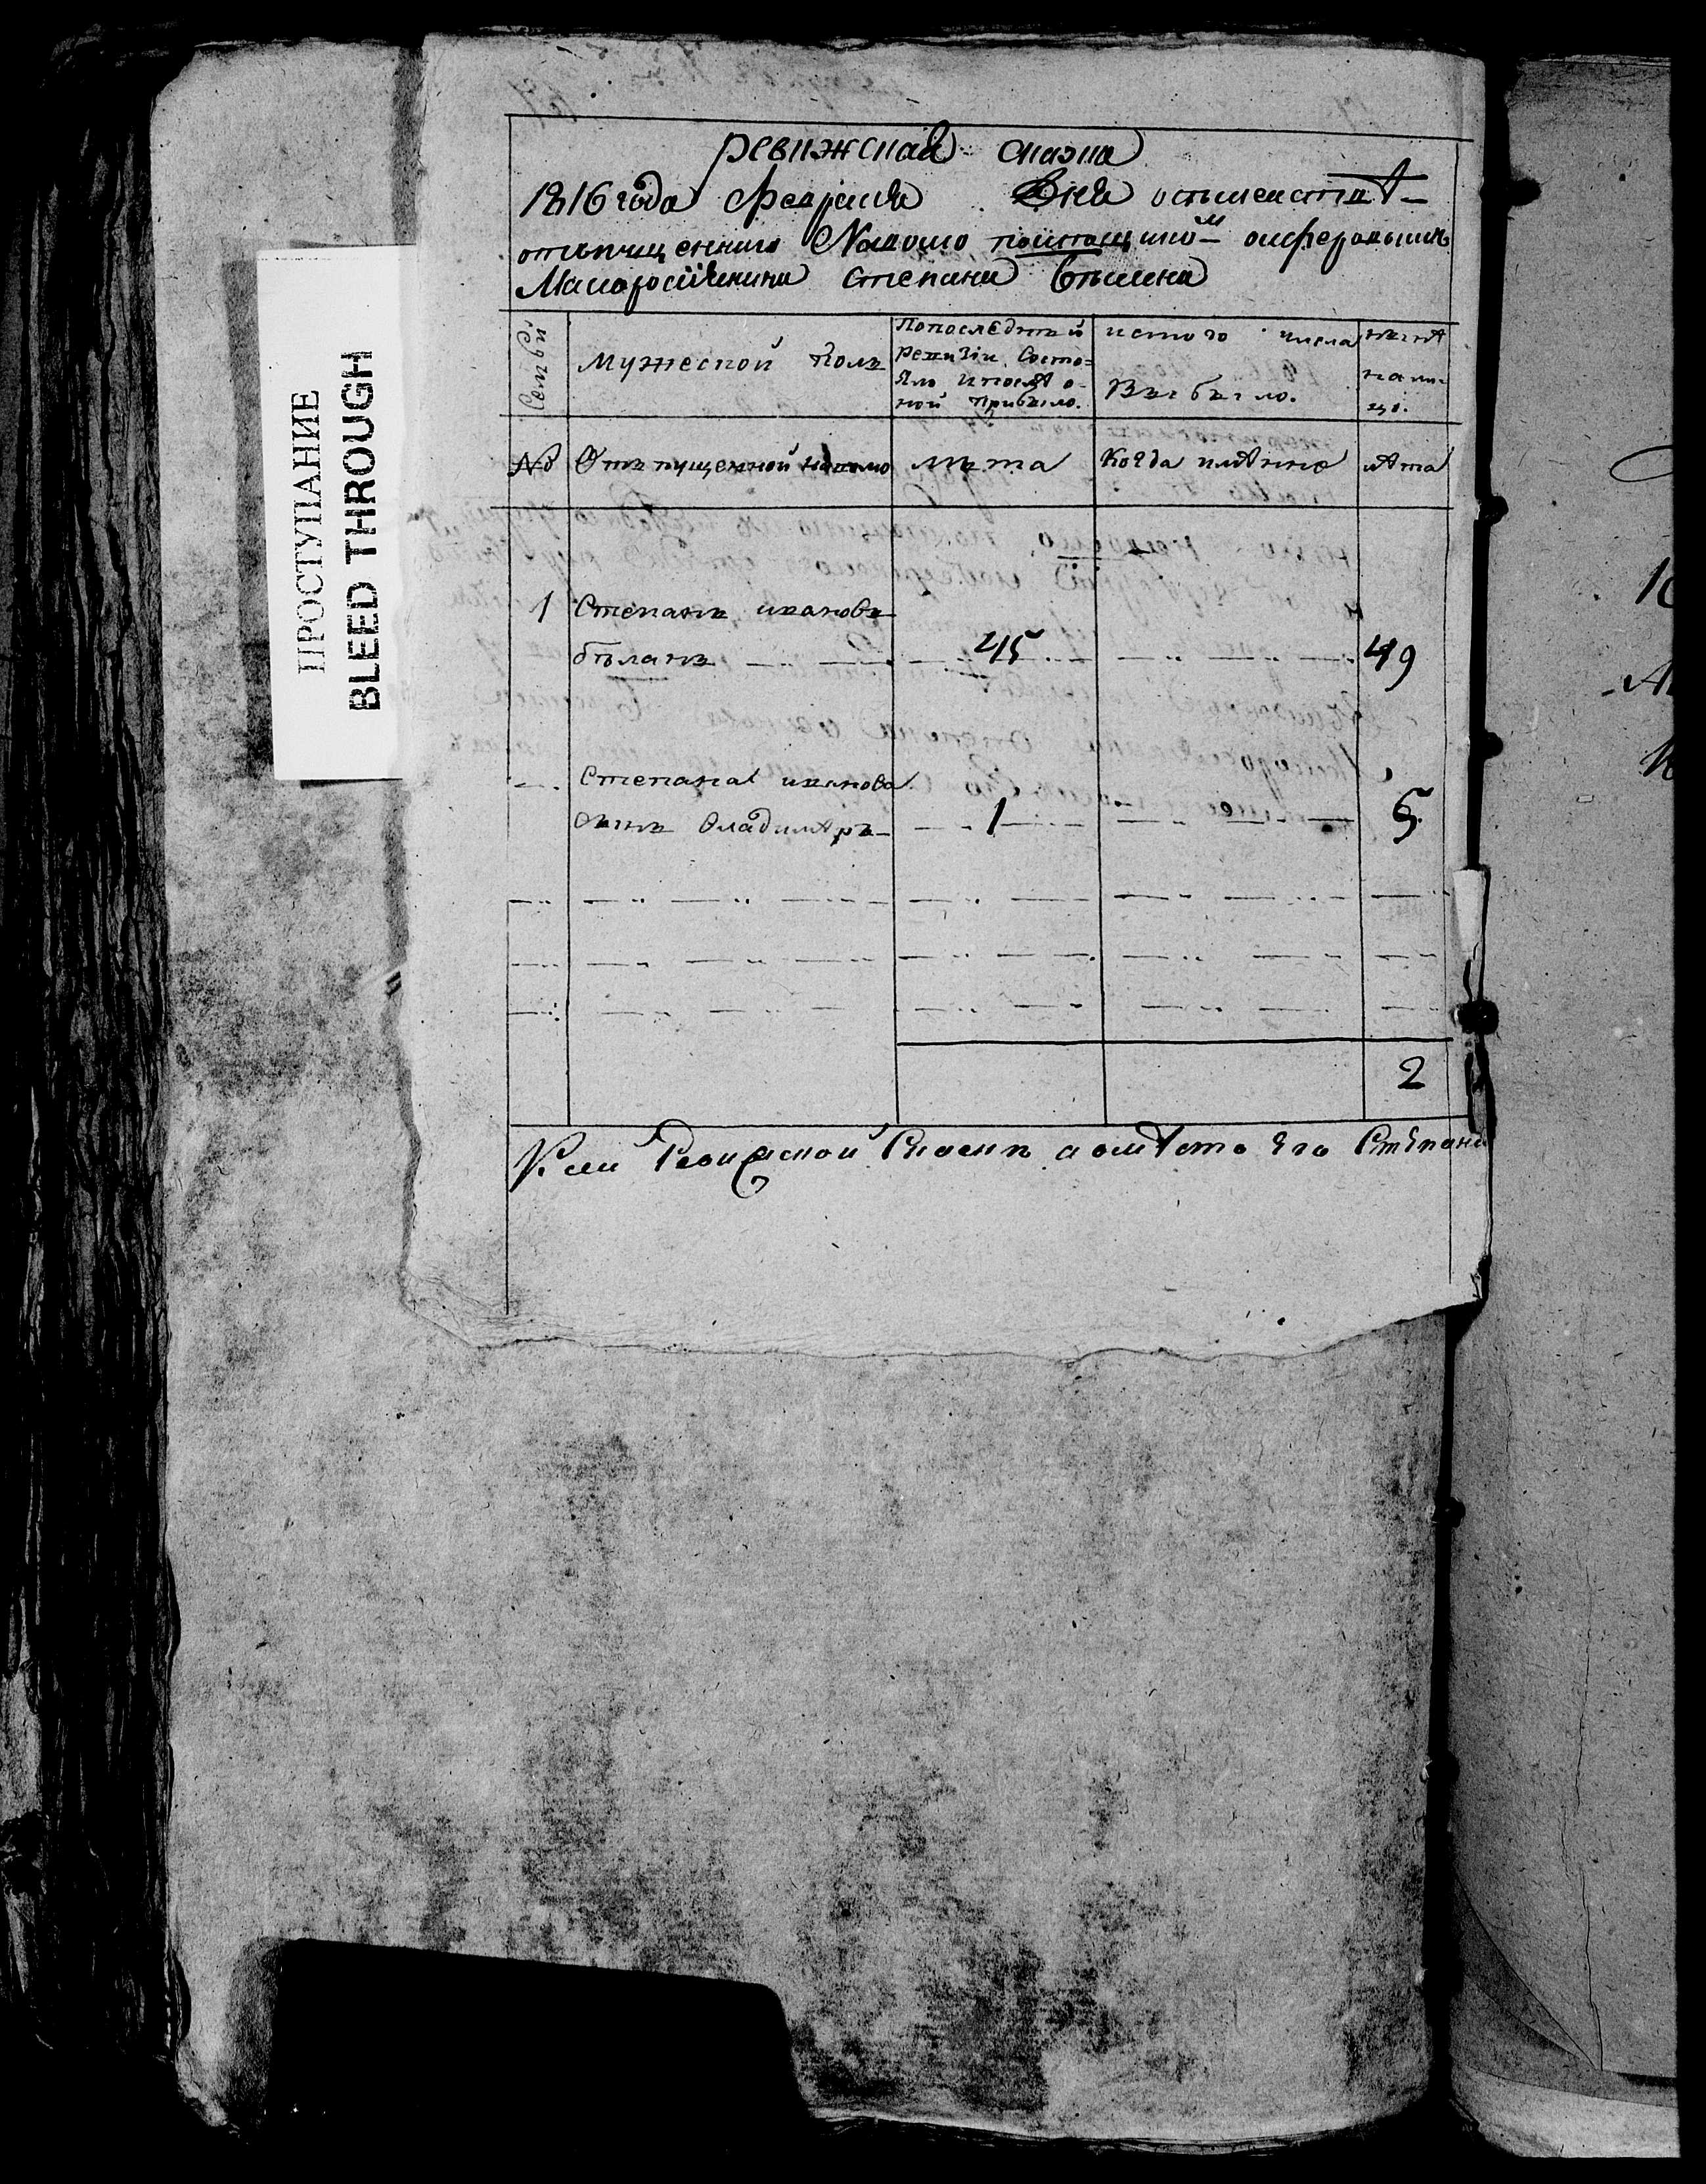 ПРОСТУПАНИЕ
BLEED THROUGH
ревижская сказка
1816 года февраля дня
отъпущеннаго Наволю помещиком
Малоросиянина степана Белана
Семьи
мужеской полъ
Попоследней
ревизiи состо=
яло и после о-
ной прибыло.
ис того числа
Выбыло.
ныне
на ли-
цо.
№ Отъпущенной наволю лѣта Когда имянно лета
1 Степанъ ивановъ
бѣланъ 45 49
Степана иванова
сынъ владимеръ 1 5
2
К сей Ревиской Скаски а вместо Его Степана